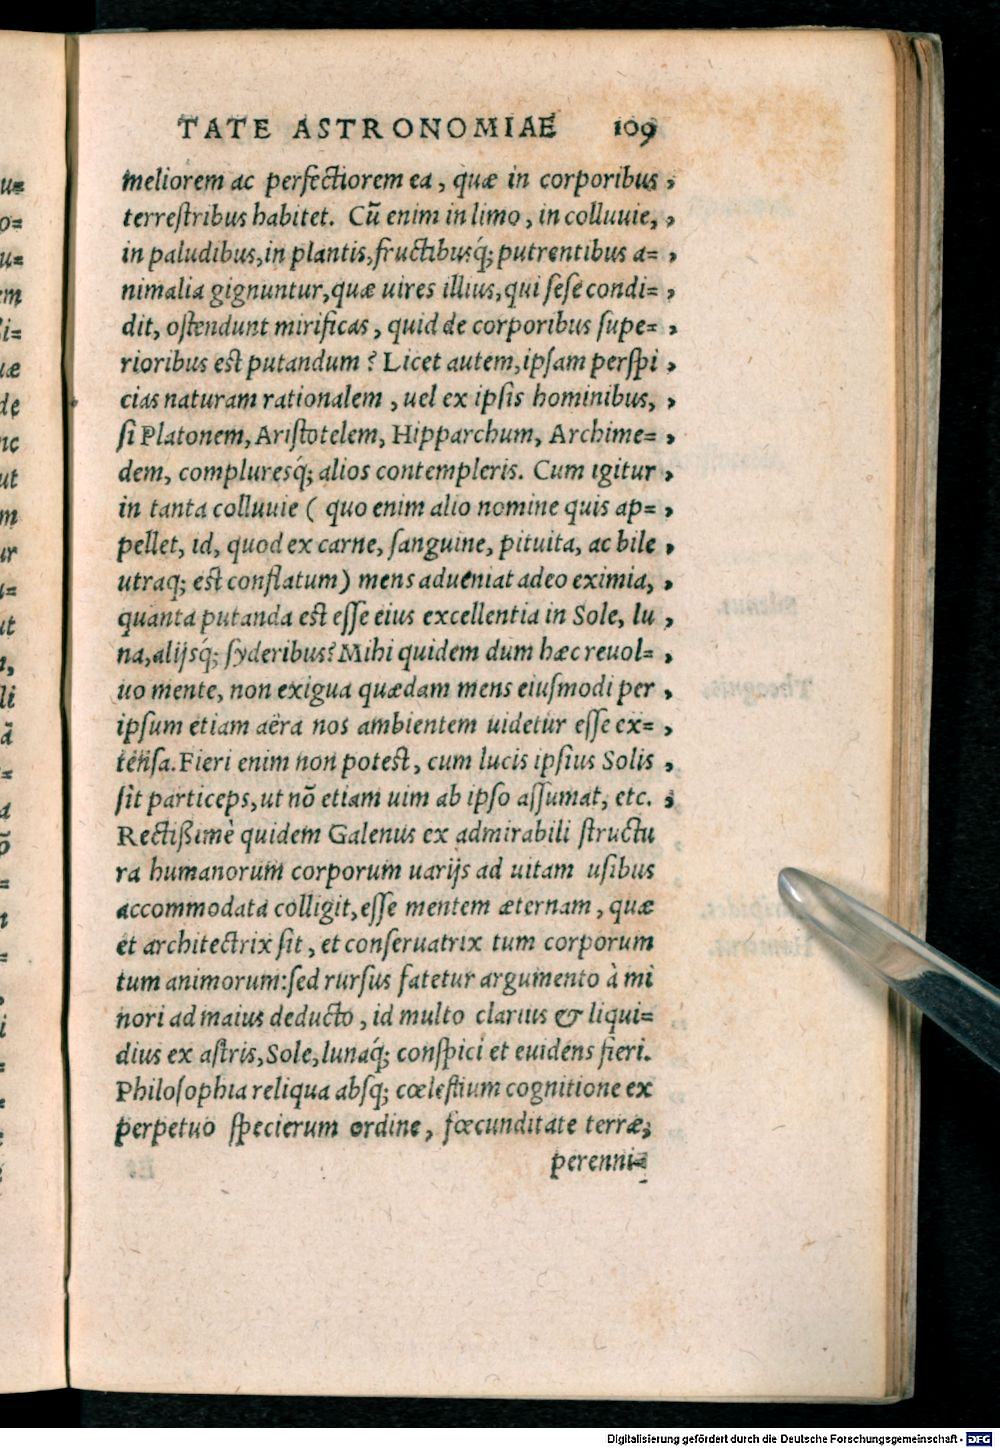 TATE ASTRONOMIAE 109
meliorem ac perfectiorem ea, quæ in corporibus ,
terrestribus habitet. Cũ enim in limo, in colluuie, ,
in paludibus, in plantis, fructibusq́; putrentibus a= ,
nimalia gignuntur, quæ uires illius, qui sese condi= ,
dit, ostendunt mirificas, quid de corporibus supe= ,
rioribus est putandum? Licet autem, ipsam perspi ,
cias naturam rationalem, uel ex ipsis hominibus, ,
si Platonem, Aristotelem, Hipparchum, Archime= ,
dem, compluresq́; alios contempleris. Cum igitur ,
in tanta colluuie ( quo enim alio nomine quis ap= ,
pellet, id, quod ex carne, sanguine, pituita, ac bile ,
utraq; est conflatum) mens adueniat adeo eximia, ,
quanta putanda est esse eius excellentia in Sole, lu ,
na, alijsq́; syderibus? Mihi quidem dum hæc reuol= ,
uo mente, non exigua quædam mens eiusmodi per ,
ipsum etiam aëra nos ambientem uidetur esse ex= ,
tensa. Fieri enim non potest, cum lucis ipsius Solis ,
sit particeps, ut nõ etiam uim ab ipso assumat, etc. ,
Rectißimè quidem Galenus ex admirabili structu
ra humanorum corporum uarijs ad uitam usibus
accommodata colligit, esse mentem æternam, quæ
et architectrix sit, et conseruatrix tum corporum
tum animorum: sed rursus fatetur argumento à mi
nori ad maius deducto, id multo clarius & liqui=
dius ex astris, Sole, lunaq́; conspici et euidens fieri.
Philosophia reliqua absq; cœlestium cognitione ex
perpetuo specierum ordine, fœcunditate terræ,
perenni=
Digitalisierung gefördert durch die Deutsche Forschungsgemeinschaft - DFG